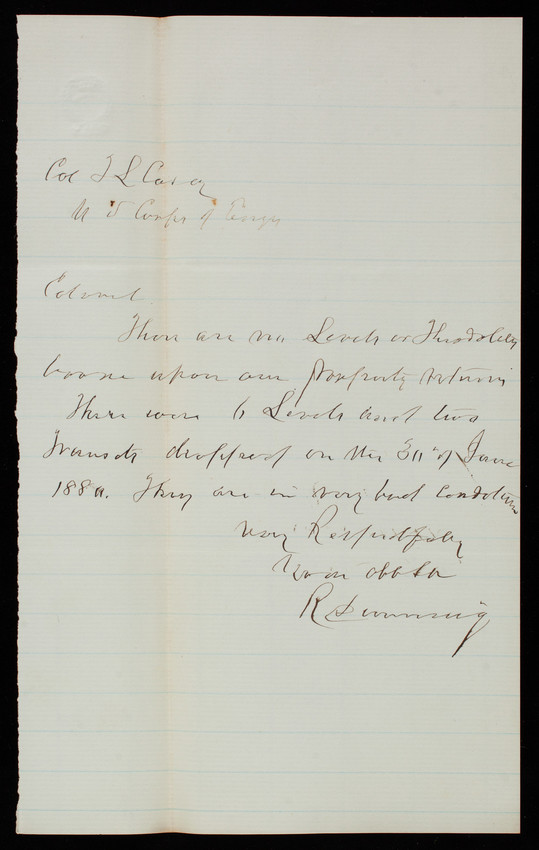 Col T L Casey
U S Corps of Engrs
Colonel
There are no Levels or Theodolites
borne upon our property returns
There were 6 Levels and two
Transits dropped on the 30" of June
1880. They are in very bad condition
Very Respectfully
Your obt St
R